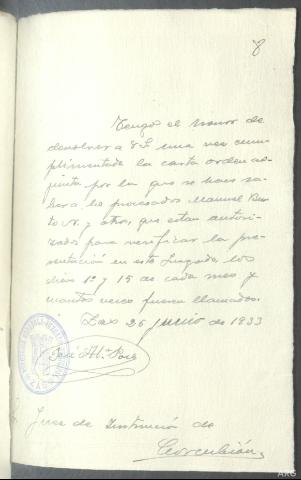 8
Tengo el honor de
devolver a V.S. una vez cum-
plimentada la carta orden ad-
junta por la que se hace sa-
ber a los procesados Manuel
y otro, que estan autori-
zados para verificar la pre-
sentación en este Juzgado los
dias 1º y 15 de cada mes y
cuantas veces fueren llamados.
Lax 26 Junio de 1933
José Mª
Juez de Instrución de
Corcubión
ARG